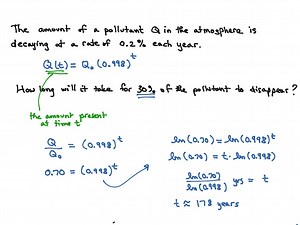 The amount of a pollutant Q in the atmosphere is
decaying at a rate of 0.2% each year.
Q(t) = Q₀(0.998)ᵗ
How long will it take for 30% of the pollutant to disappear?
the amount present
at time t
Q/Q₀ = (0.998)ᵗ
0.70 = (0.998)ᵗ
ln(0.70) = ln(0.998)ᵗ
ln(0.70) = t·ln(0.998)
ln(0.70)/ln(0.998) yrs = t
t ≈ 178 years